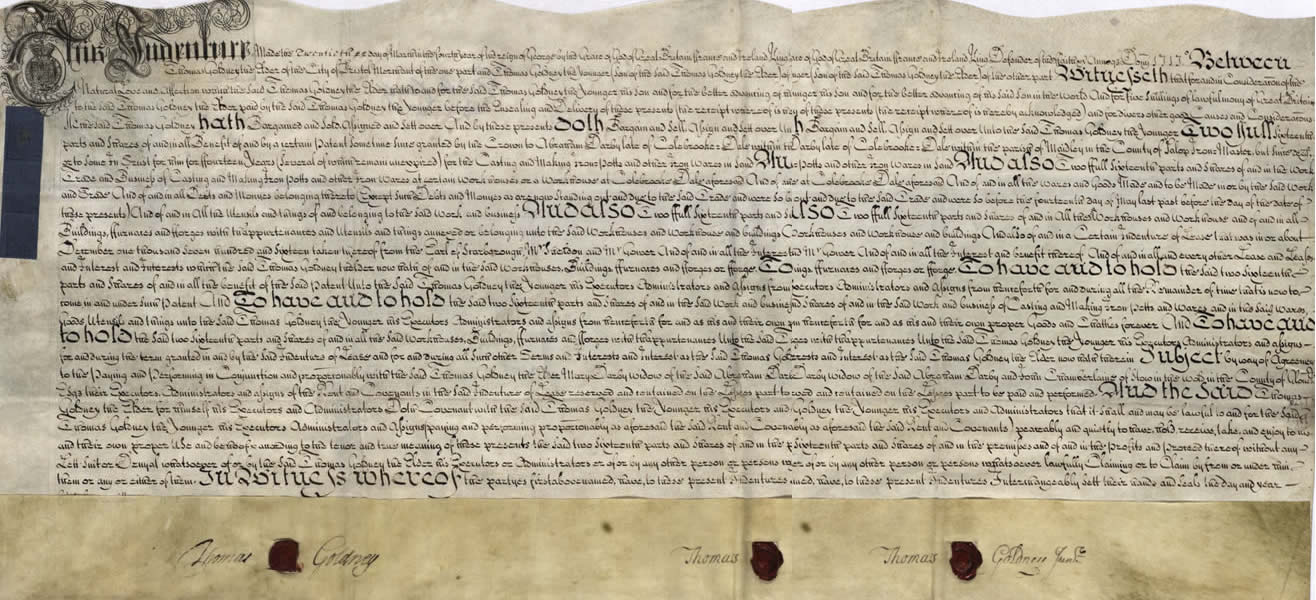 This Indenture Made the twentieth day of March in the fourth year of the reign of George by the Grace of God of Great Britain France and Ireland King Grace of God of Great Britain France and Ireland King Defender of the Faith Annoq Dom 1717 Between
Thomas Goldney the Elder of the City of Bristol Merchant of the one part and Thomas Goldney the Younger son of the said Thomas Goldney the Elder of the other part Witnesseth that for and in Consideration of the
Naturall Love and Affection which the said Thomas Goldney the Elder hath for the said Thomas Goldney the Younger his son and for the better advancing of his said son in the World And for five shillings of lawfull mony of Great
to the said Thomas Goldney the Elder paid by the said Thomas Goldney the Younger before the Ensealing and Delivery of these presents (the receipt whereof is hereby acknowledged) and for divers other good Causes and Considerations
the said Thomas Goldney hath Bargained and Sold Assigned and Sett over And by these presents doth Bargain and Sell Assign and Sett over Unto the said Thomas Goldney the Younger Two full Sixteenth
parts and Shares of and in all Benefit of and by a certain Patent sometime since granted by the Crown to Abraham Darby late of Colebrooke Dale within the parish of Madeley in the County of Salop Iron Master, but since
to some in Trust for him for fourteen Years (several of which remain unexpired) for the Casting and Making Iron Potts and other Iron Wares in Sand And also Two full Sixteenth parts and Shares of and in the Work
Trade and Business of Casting and Making Iron Potts and other Iron Wares at certain Workhouses or a Workhouse at Colebrooke Dale aforesaid And of and in all the Wares and Goods Made and to be Made in or by the said Work
and Trade And of and in all Debts and Monyes belonging thereto (Except such Debts and Monyes as are now standing out and due to the said Trade and were so before the fourteenth day of May last past before the day of the Date of
these presents) And of and in All the Utensils and things of and belonging to the said Work and business And also Two full Sixteenth parts and Shares of and in All the Workhouses and Workhouse and of and in all
Buildings, ffurnaces and fforges with th'appurtenances and Utensils and things annexed or belonging unto the said Workhouses and Workhouse and buildings And also of and in a Certain Indenture of Lease that was in or about
December one thousand Seven hundred and Sixteen taken thereof from the Earl of Scarborough, Mr Sheldon and Mr Gower And of and in all the Interest and benefit thereof And of and in all and every other Lease and Leases
and Interest and Interests which the said Thomas Goldney the Elder now hath of and in the said Workhouses, Buildings ffurnaces and fforges or fforge, To have and to hold the said two Sixteenth
parts and Shares of and in all the benefit of the said Patent Unto the said Thomas Goldney the Younger his Executors Administrators and Assigns from henceforth for and during all the Remainder of time that is now to
come in and under such Patent And To have and to hold the said two Sixteenth parts and Shares of and in the said Work and business of Casting and Making Iron Potts and Wares and in the said Wares,
Goods, Utensils and things unto the said Thomas Goldney the Younger his Executors Administrators and Assigns from henceforth for and as his and their own proper Goods and Chattles forever And To have and
to hold the said two Sixteenth parts and Shares of and in all the said Workhouses, Buildings, ffurnaces and fforges with th'appurtenances Unto the said Thomas Goldney the Younger his Executors Administrators and Assigns
for and during the term granted in and by the said Indenture of Lease and for and during all such other Terms and Interests and Interest as the said Thomas Goldney the Elder now hath therein Subject by way of Agreement
to the Paying and Performing in Conjunction and proportionably with the said Thomas Goldney the Elder Mary Darby widow of the said Abraham Darby and John Chamberlaine of Stow in the Wold in the County of
their Executors Administrators and Assigns of the Rent and Covenants in the said Indenture of Lease reserved and contained on the Lessees part to be paid and performed And the said Thomas
Goldney the Elder for himself his Executors and Administrators Doth Covenant with the said Thomas Goldney the Younger his Executors and Administrators that it shall and may be lawful to and for the said
Thomas Goldney the Younger his Executors Administrators and Assigns (paying and performing proportionably as aforesaid the said Rent and Covenants) peaceably and quietly to have, hold, receive, take, and enjoy to his
and their own proper Use and behoof according to the tenor and true meaning of these presents the said two Sixteenth parts and Shares of and in the premises and of and in the Profits and Proceed thereof without any
Lett Suit or Denyal whatsoever of or by the said Thomas Goldney the Elder his Executors or Administrators or of or by any other person or persons whatsoever lawfully Claiming or to Claim by from or under him
them or any or either of them. In Witness whereof the partyes first above named, have, to these present Indentures Interchangeably sett their hands and seals the day and year
Thomas Goldney Thomas Thomas Goldney Junr